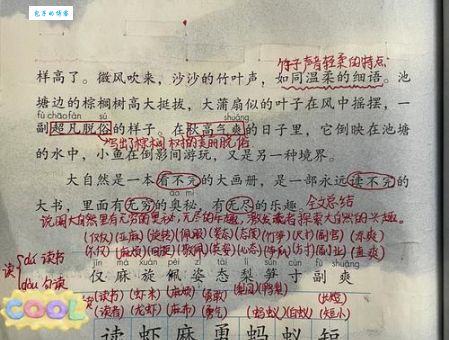 包子的博客
竹子声音轻柔的特点
样高了。微风吹来，沙沙的竹叶声，如同温柔的细语。池
塘边的棕榈树高大挺拔，大蒲扇似的叶子在风中摇摆，一
fù chāo fán sú shuǎng
副超凡脱俗的样子。在秋高气爽的日子里，它倒映在池塘
写出了棕榈树的美丽脱俗
的水中，小鱼在倒影间游玩，又是另一种境界。
大自然是一本看不完的大画册，是一部永远读不完的
ào mì
大书，里面有无穷的奥秘，有无尽的乐趣。全文总结
说明大自然里有无穷的奥秘，无尽的乐趣，激发读者探索大自然的兴趣。
(仅仅)(亚麻)(旋转)(佩服)(姿态)(态度)(竹笋)(尺寸)(副官)(凉爽)
读 dú 读书
jǐn má xuán pèi zī tài lí sǔn cùn fù shuǎng
仅麻旋佩姿态梨笋寸副爽
dòu 句读
COOL
(读书)(虾米)(麻烦)(勇敢)(出短)
(读者)(龙虾)(麻布)(勇气)(蚂蚁)(白蚁)(短小)
读虾麻勇蚂蚁短